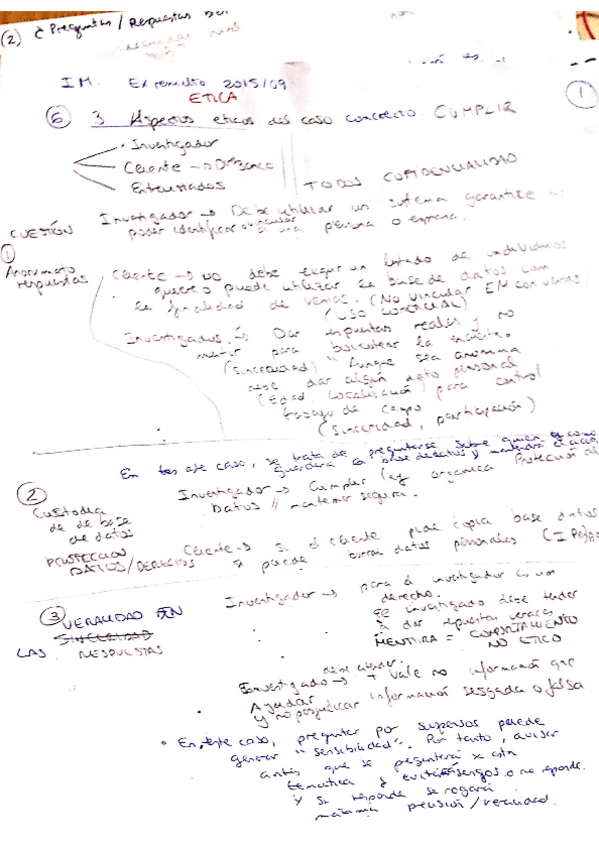 (2) ¿ Preguntas / Respuestas
I M. Ex resuelto 2015/09
ETICA
1
6 3 Aspectos eticos del caso concreto. CUMPLIR
· Investigador
Cliente → Banco
Entrevistados
TODOS CONFIDENCIALIDAD
CUESTIÓN Investigador → Debe utilizar un sistema garantice no
poder identificar a una persona o empresa.
1
Anonimato
respuestas
Cliente → NO debe exigir un listado de individuos
puede utilizar la base de datos con
la finalidad de ventas. (No vincular EM con ventas)
(USO COMERCIAL)
Investigados → Dar respuestas reales y no
mentir para boicotear la encuesta.
(sinceridad) " Aunque sea anonima
debe dar algún dato personal
(Edad, localización) para control
trabajo de campo
(sinceridad, participación)
En este caso, se trata de preguntarse sobre quien es como
guardará la base de datos y mantendrá
2
Custodia
de de base
de datos
PROTECCION
DATOS/DERECHOS
Investigador → Cumplir ley organica Protección de
Datos // mantener segura.
Cliente → Si el cliente pide copia base datos
se puede borrar datos personales
3 VERACIDAD EN
SINCERIDAD
LAS RESPUESTAS
Investigador → para el investigador es un
derecho.
investigado debe tender
a dar repuestas veraces
MENTIRA = COMPORTAMIENTO
NO ETICO
debe atender.
Investigado → + Vale no información que
Ayudar
y no perjudicar información sesgada o falsa
• En este caso, preguntar por seguros puede
generar "sensibilidad". Por tanto, avisar
antes que se preguntará x esta
tematica y evitar sesgos o no responde.
y si responde se rogará
máxima precisión/veracidad.